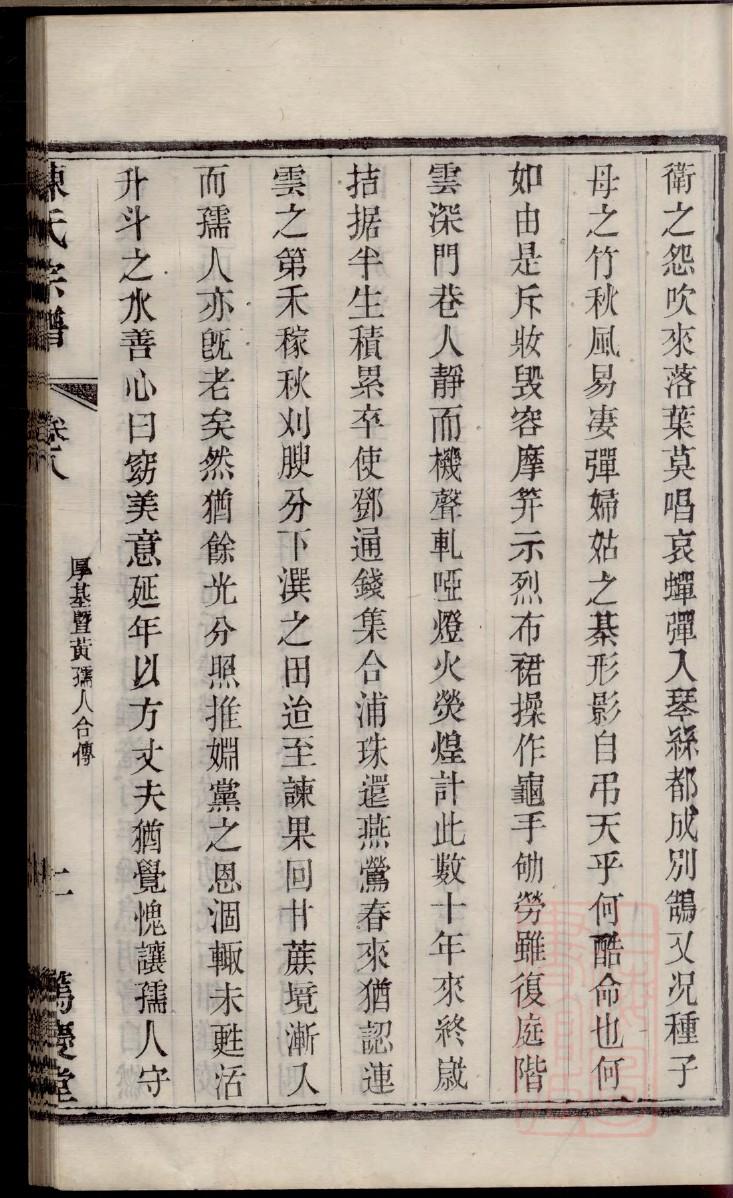 衛之怨吹來落葉莫唱哀蟬彈入琴絲都成別鵠又况種子
母之竹秋風易凄彈婦姑之棊形影自弔天乎何酷命也何
如由是斥妝毀容摩笄示烈布裙操作龜手劬勞雖復庭階
雲深門巷人靜而機聲軋啞燈火熒煌計此數十年來終歲
拮据半生積累卒使鄧通錢集合浦珠還燕鶯春來猶認連
雲之第禾稼秋刈腴分下潠之田迨至諫果回甘蔗境漸入
而孺人亦旣老矣然猶餘光分照推婣黨之恩涸轍未甦活
升斗之水善心曰窈美意延年以方丈夫猶覺愧讓孺人守
陳氏宗譜
卷八
厚基暨黃孺人合傳
二
萬慶堂